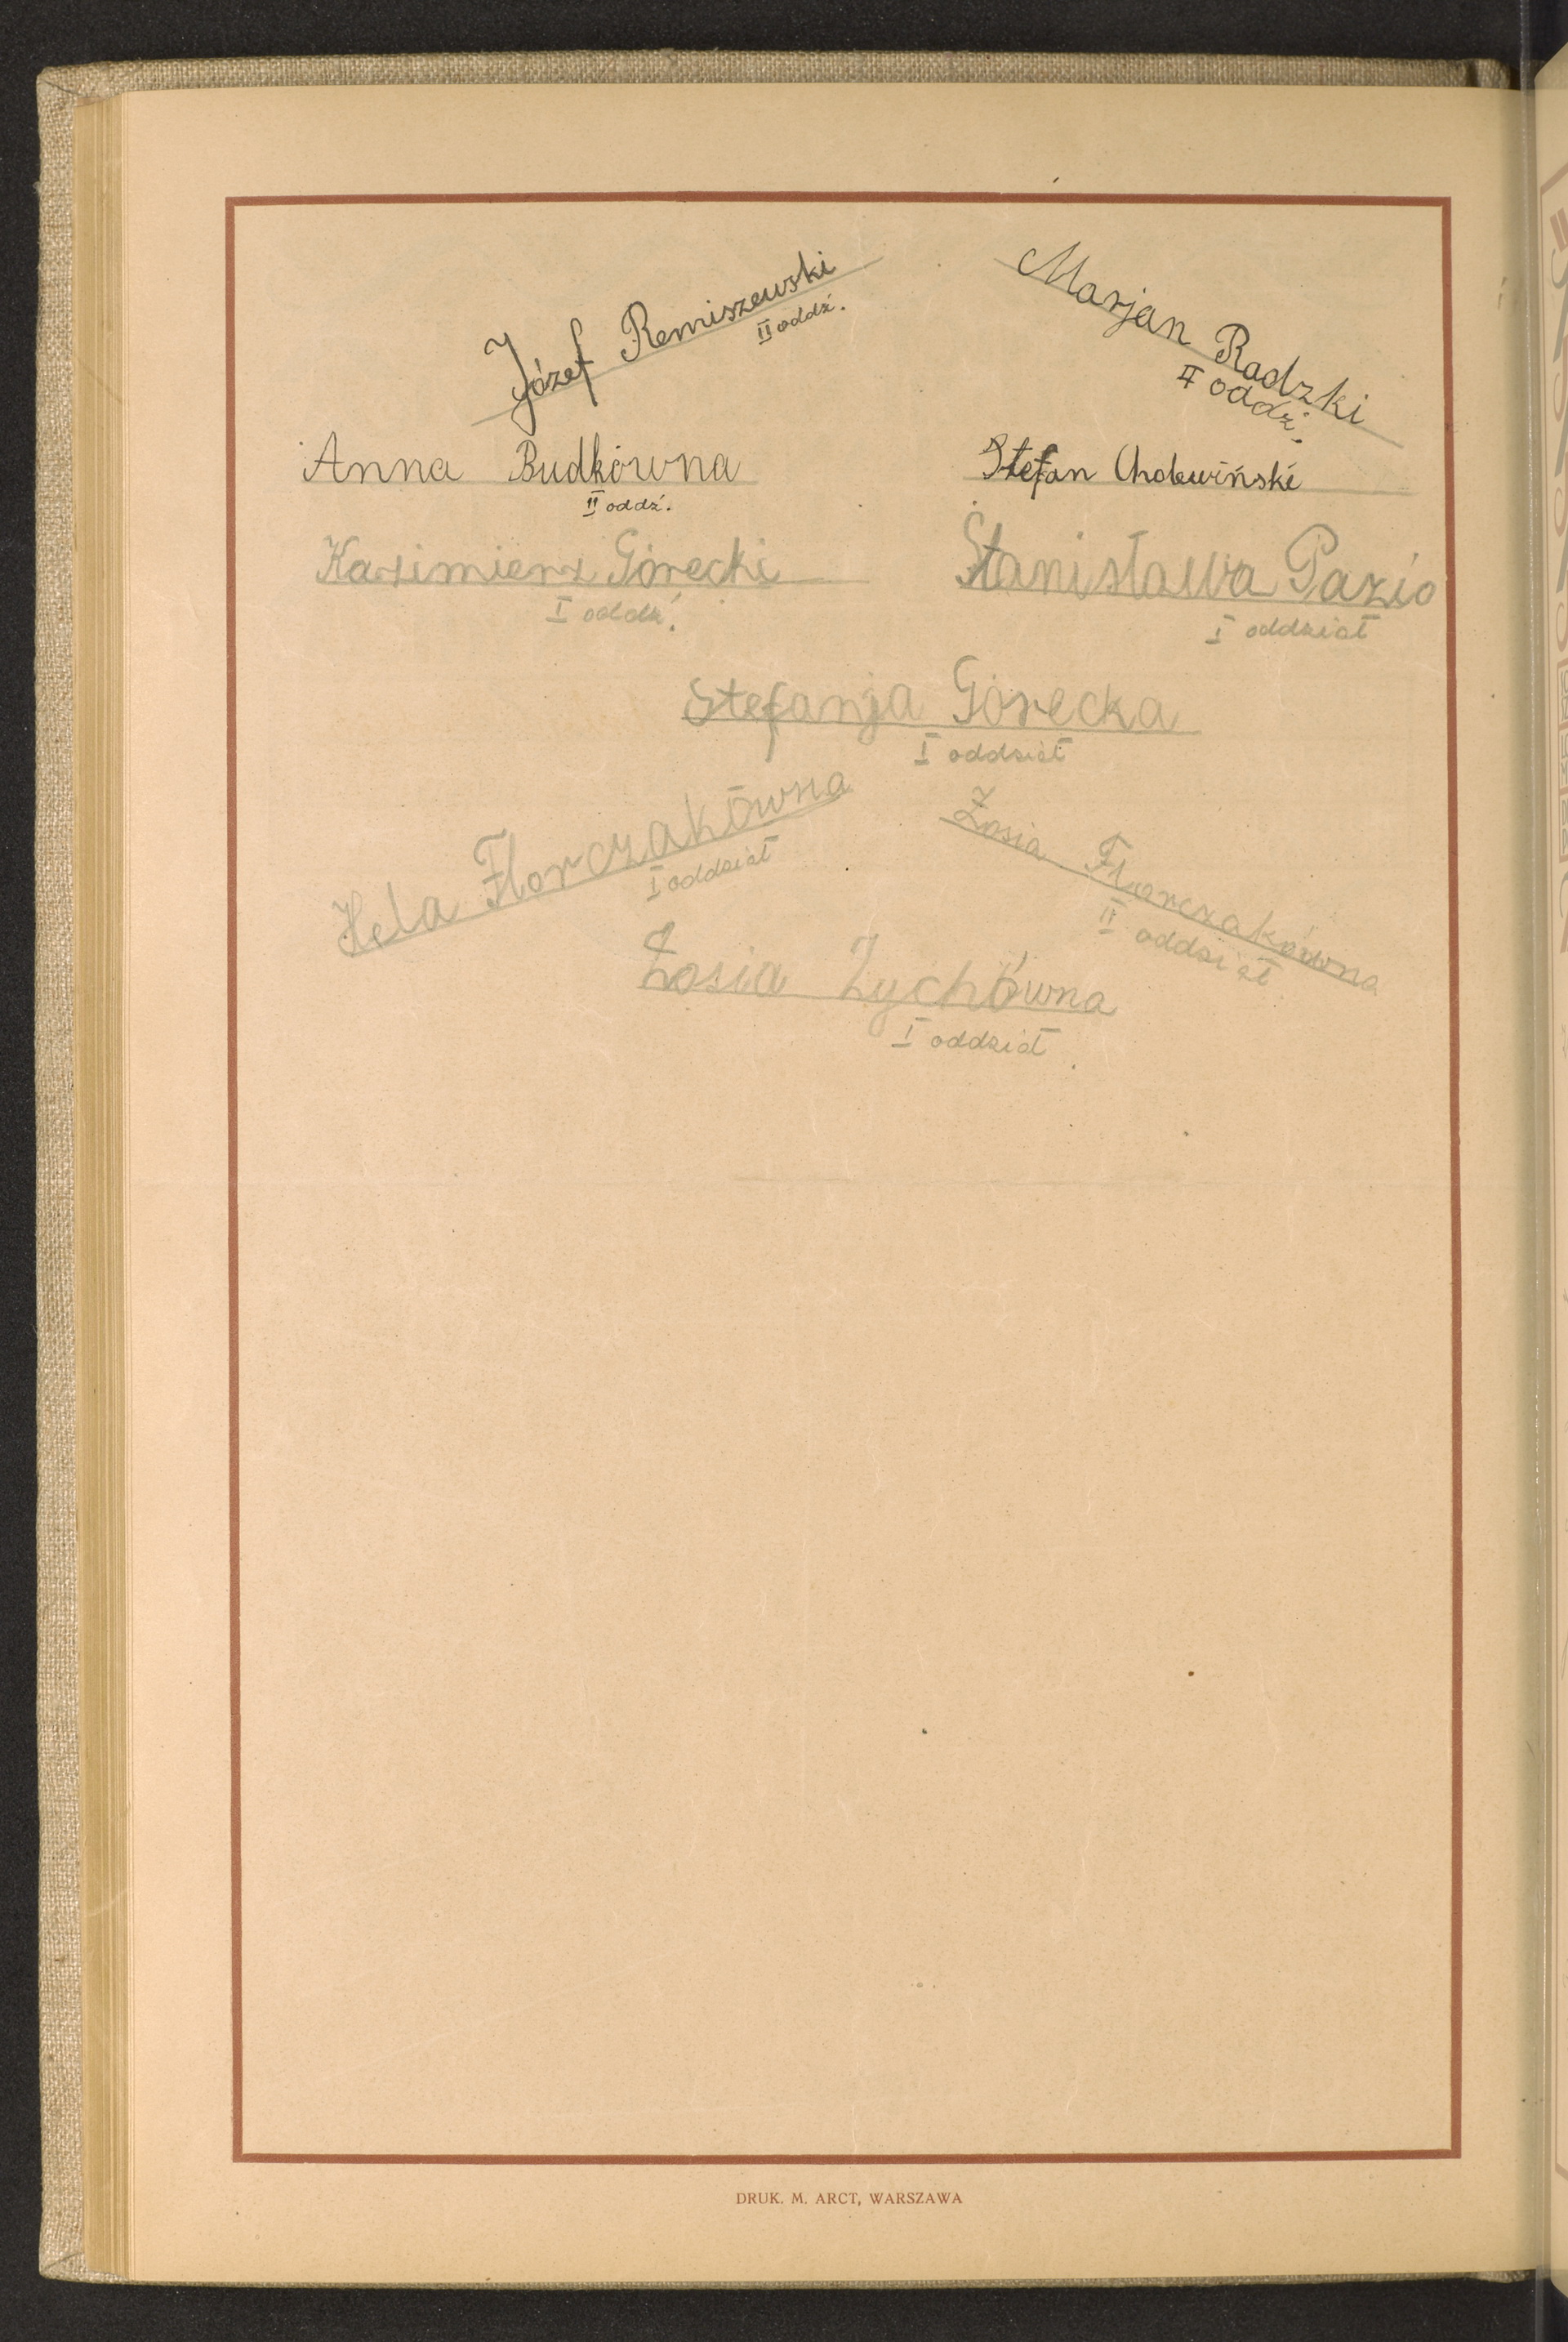 Józef Remiszewski
II oddź.
Marjan Radzki
II oddź.
Anna Budkówna
II oddź.
Stefan Cholewiński
Kazimierz Górecki
I oddź.
Stanisława Pazio
I oddział
Stefanja Górecka
I oddział
Hela Florczakówna
I oddział
Zosia Florczakówna
II oddział
Zosia Zychówna
I oddział
DRUK. M. ARCT, WARSZAWA